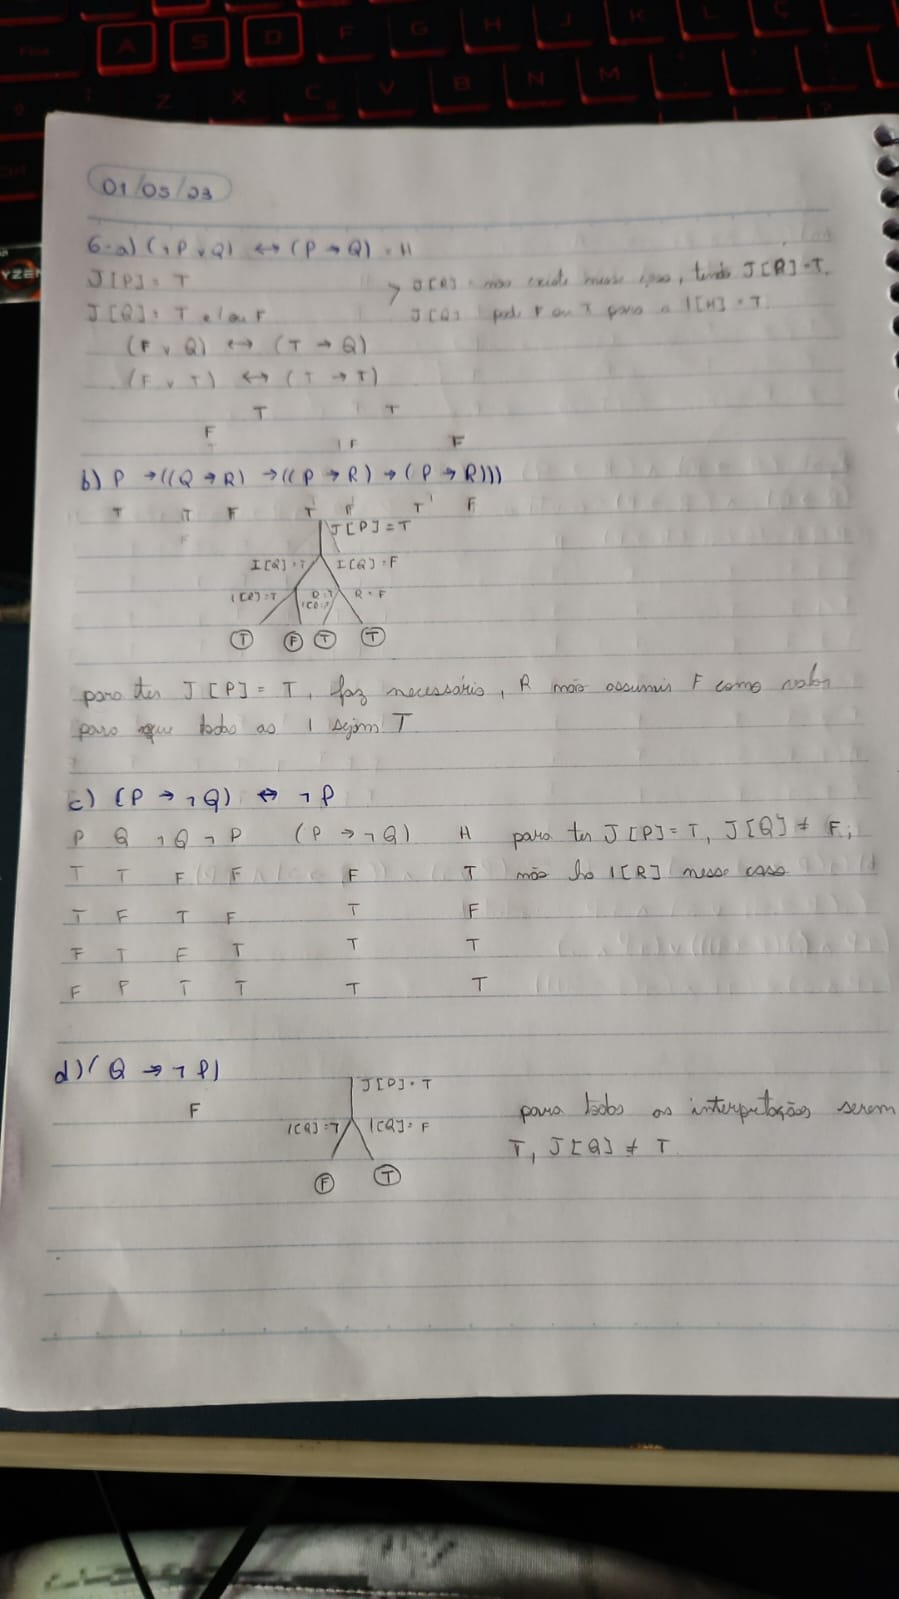 01/05/23
6-a) (¬P ∨ Q) ↔ (P → Q) = H
J[P] = T
J[Q] = T e/ou F
> J[R] não existe nesse caso, tendo J[P] = T,
J[Q] pode F ou T para a I[H] = T.
(F ∨ Q) ↔ (T → Q)
(F ∨ T) ↔ (T → T)
T T
F F F
b) P → ((Q → R) → ((P → R) → (P → R)))
T T F T F T F
F
J[P] = T
I[Q] = T I[Q] = F
I[R] = T R = F
T F T T
para ter J[P] = T, faz necessário, R não assumir F como valor
para que todas as I sejam T
c) (P → ¬Q) ↔ ¬P
P Q ¬Q ¬P (P → ¬Q) H
T T F F F T
T F T F T F
F T F T T T
F F T T T T
para ter J[P] = T, J[Q] ≠ F;
não há I[R] nesse caso
d) (Q → ¬P)
F
J[P] = T
I[Q] = T I[Q] = F
F T
para todas as interpretações serem
T, J[Q] ≠ T
A S D F G H J K L Ç
Z X C V B N M
YZEN